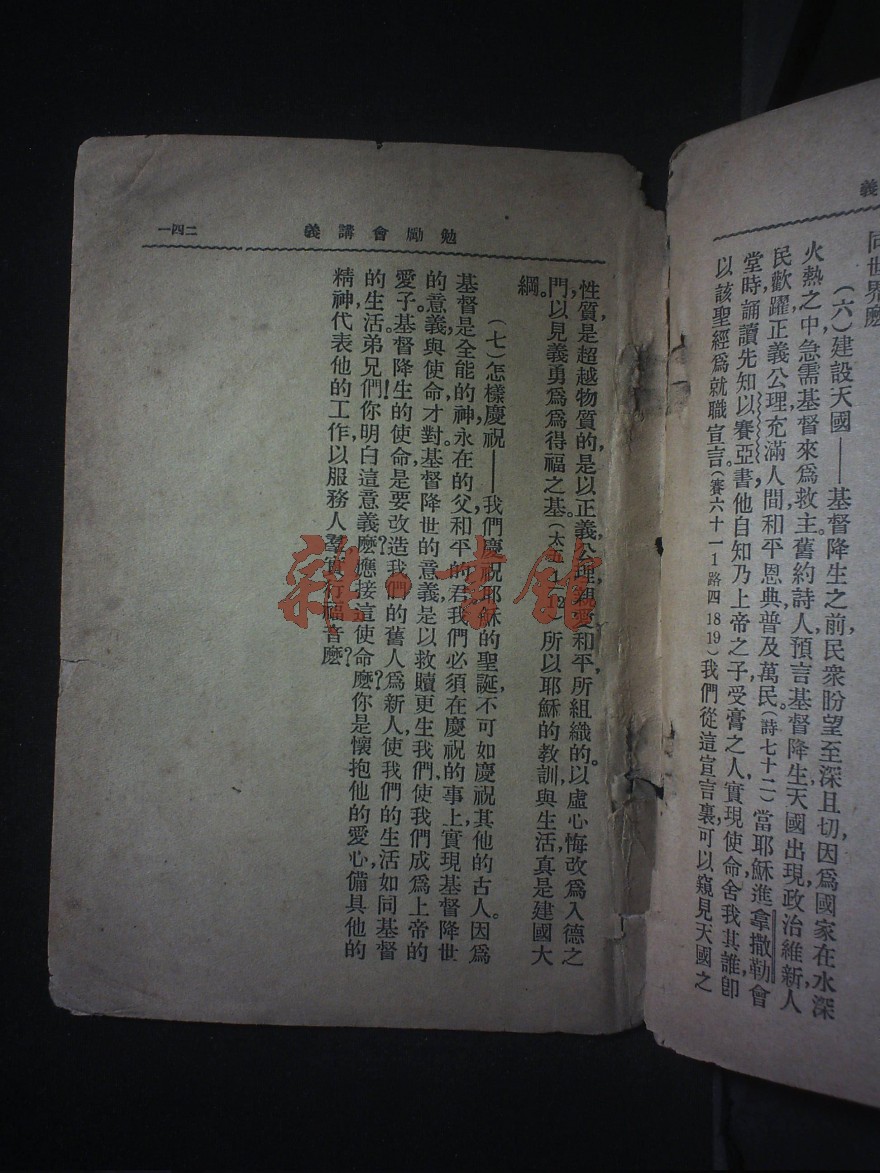 義
同世界麽
（六）建設天國——基督降生之前，民衆盼望至深且切，因爲國家在水深
火熱之中，急需基督來爲救主。舊約詩人，預言基督降生，天國出現，政治維新，人
民歡躍，正義公理，充滿人間，和平恩典，普及萬民。（詩七十二）當耶穌進拿撒勒會
堂時，誦讀先知以賽亞書，他自知乃上帝之子，受膏之人，實現使命，舍我其誰，卽
以該聖經爲就職宣言。（賽六十一1路四18 19）我們從這宣言裏，可以窺見天國之
勉勵會講義
一四二
性質，是超越物質的，是以正義，公理，親愛和平所組織的。以虛心悔改爲入德之
門，以見義勇爲爲得福之基。（太五1—12）所以耶穌的教訓與生活，真是建國大
綱。
（七）怎樣慶祝——我們慶祝耶穌的聖誕，不可如慶祝其他的古人。因爲
基督是全能的神，永在的父，和平的君。我們必須在慶祝的事上，實現基督降世
的意義與使命，才對。基督降世的意義，是以救贖更生我們，使我們成爲上帝的
愛子。基督降生的使命，是要改造我們的舊人爲新人，使我們的生活，如同基督
的生活。弟兄們！你明白這意義麽？應接這使命麽？你是懷抱他的愛心，備具他的
精神，代表他的工作，以服務人羣，實行福音麽？
雜·書館